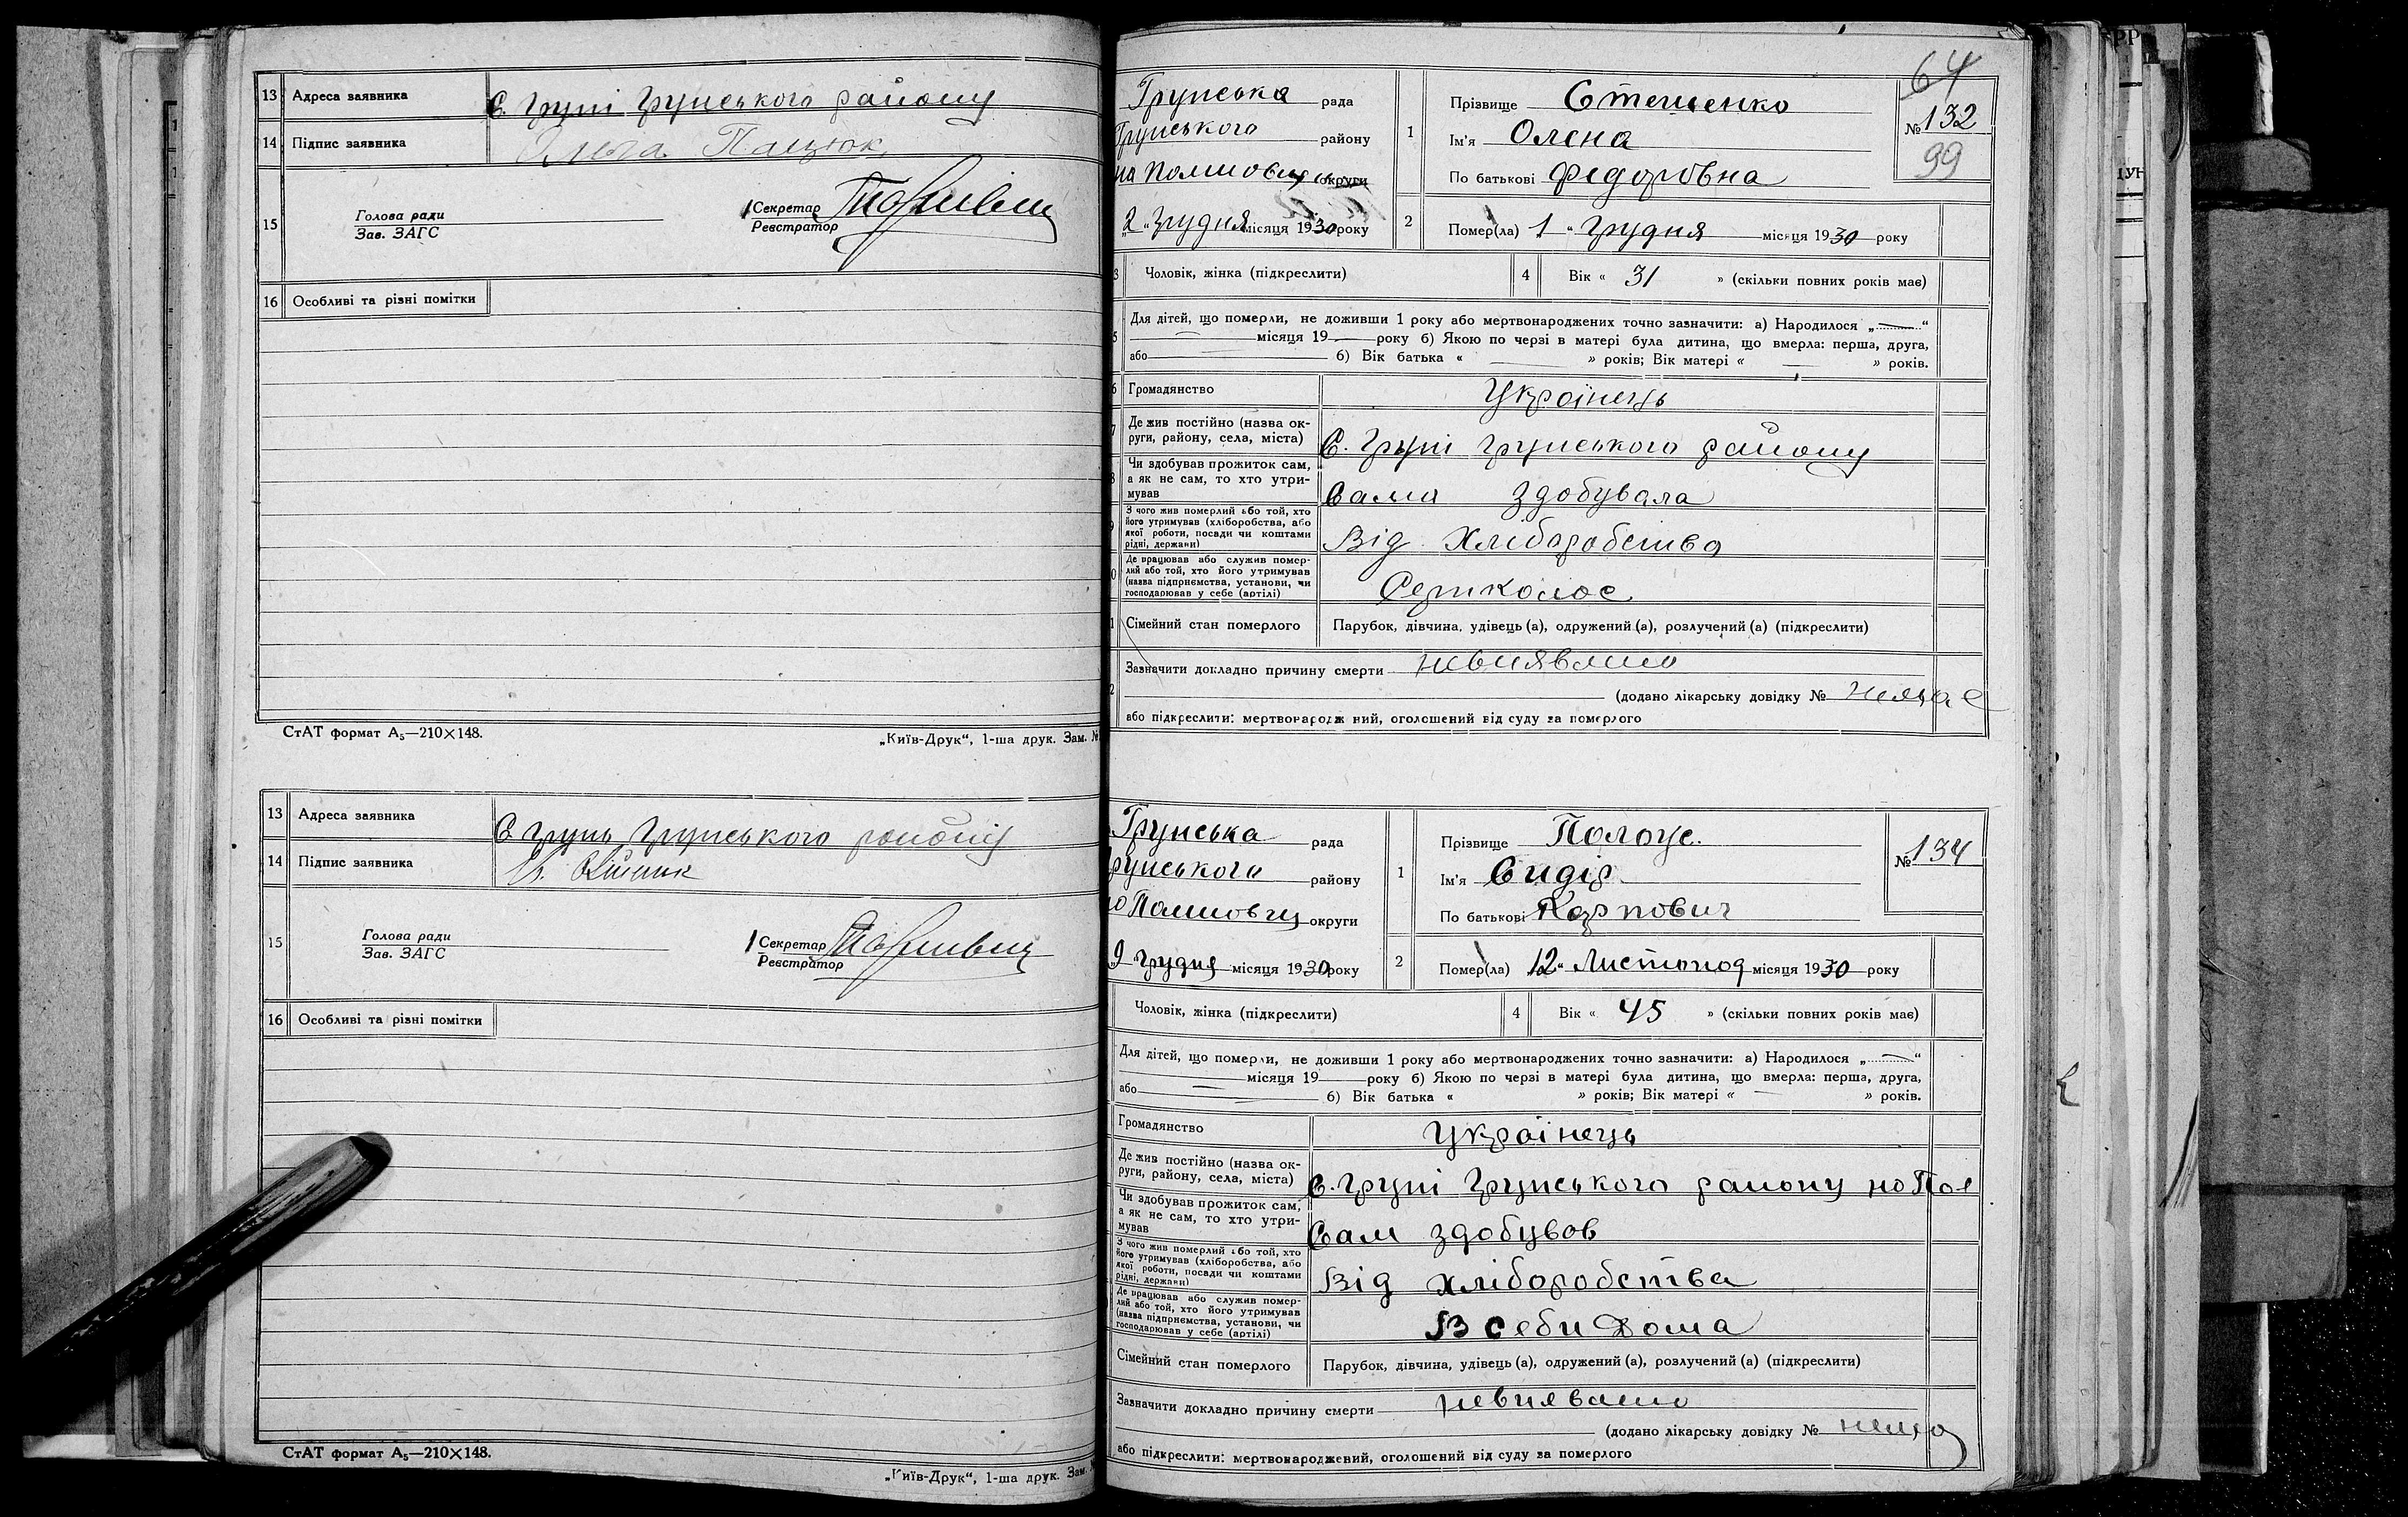 13 Адреса заявника С. Груні Грунського району
14 Підпис заявника Ольга Пацюк
15 Голова ради
Зав. ЗАГС
Секретар
Реєстратор
16 Особливі та різні помітки
СтАТ формат А₅—210×148.
„Київ-Друк“, 1-ша друк. Зам. №
13 Адреса заявника С Грунь Грунського району
14 Підпис заявника
15 Голова ради
Зав. ЗАГС
Секретар
Реєстратор
16 Особливі та різні помітки
СтАТ формат А₅—210×148.
„Київ-Друк“, 1-ша друк. Зам.
64
Грунська рада
Грунського району
округи
„2“ Грудня місяця 1930 року
1 Прізвище Стешенко
Ім'я Олена
По батькові Федорівна
№ 132
99
2 Помер(ла) 1 “ Грудня місяця 1930 року
3 Чоловік, жінка (підкреслити) 4 Вік « 31 » (скільки повних років має)
5 Для дітей, що померли, не доживши 1 року або мертвонароджених точно зазначити: а) Народилося „ “
місяця 19 року б) Якою по черзі в матері була дитина, що вмерла: перша, друга,
або б) Вік батька « » років; Вік матері « » років.
6 Громадянство Українець
7 Де жив постійно (назва ок-
руги, району, села, міста) С. Груні Грунського району
8 Чи здобував прожиток сам,
а як не сам, то хто утри-
мував Сама здобувала
9 З чого жив померлий або той, хто
його утримував (хліборобства, або
якої роботи, посади чи коштами
рідні, держави) Від хліборобства
10 Де працював або служив помер-
лий або той, хто його утримував
(назва підприємства, установи, чи
господарював у себе (артілі)
11 Сімейний стан померлого Парубок, дівчина, удівець (а), одружений (а), розлучений (а) (підкреслити)
12 Зазначити докладно причину смерти невиявлено
(додано лікарську довідку № немає
або підкреслити: мертвонароджений, оголошений від суду за померлого
Грунська рада
Грунського району
округи
9 Грудня місяця 1930 року
1 Прізвище Полоус.
Ім'я Сидір
По батькові Карпович
№ 134
2 Помер(ла) 12 “ Листопад місяця 1930 року
Чоловік, жінка (підкреслити) 4 Вік « 45 » (скільки повних років має)
Для дітей, що померли, не доживши 1 року або мертвонароджених точно зазначити: а) Народилося „ “
місяця 19 року б) Якою по черзі в матері була дитина, що вмерла: перша, друга,
або б) Вік батька « » років; Вік матері « » років.
Громадянство Українець
Де жив постійно (назва ок-
руги, району, села, міста) С. Груні Грунського району на Пол
Чи здобував прожиток сам,
а як не сам, то хто утри-
мував Сам здобував
З чого жив померлий або той, хто
його утримував (хліборобства, або
якої роботи, посади чи коштами
рідні, держави) Від хліборобства
Де працював або служив помер-
лий або той, хто його утримував
(назва підприємства, установи, чи
господарював у себе (артілі) В себи дома
Сімейний стан померлого Парубок, дівчина, удівець (а), одружений (а), розлучений (а) (підкреслити)
Зазначити докладно причину смерти невиявлено
(додано лікарську довідку № нема
або підкреслити: мертвонароджений, оголошений від суду за померлого